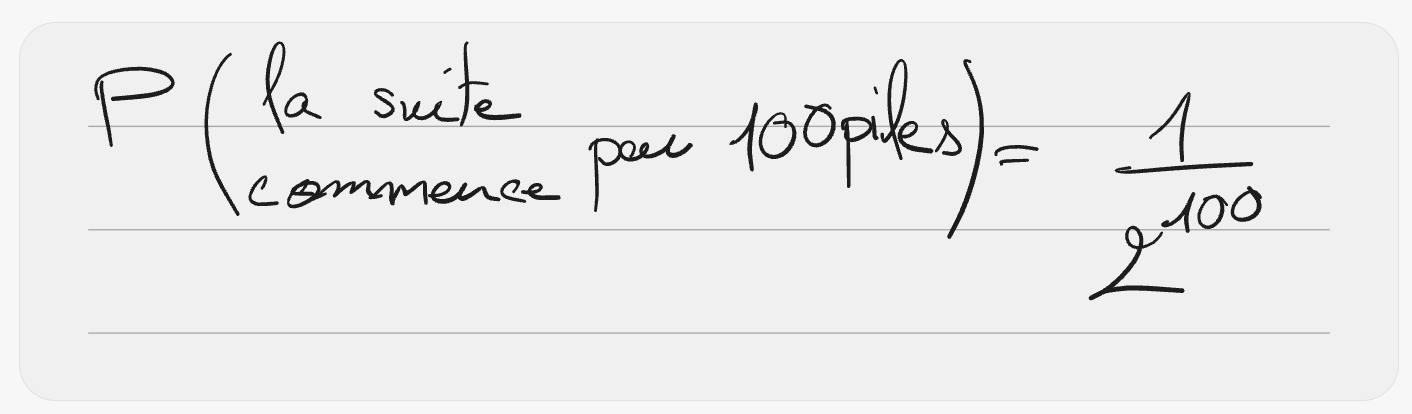 P (la suite commence par 100 piles) = 1/2^100